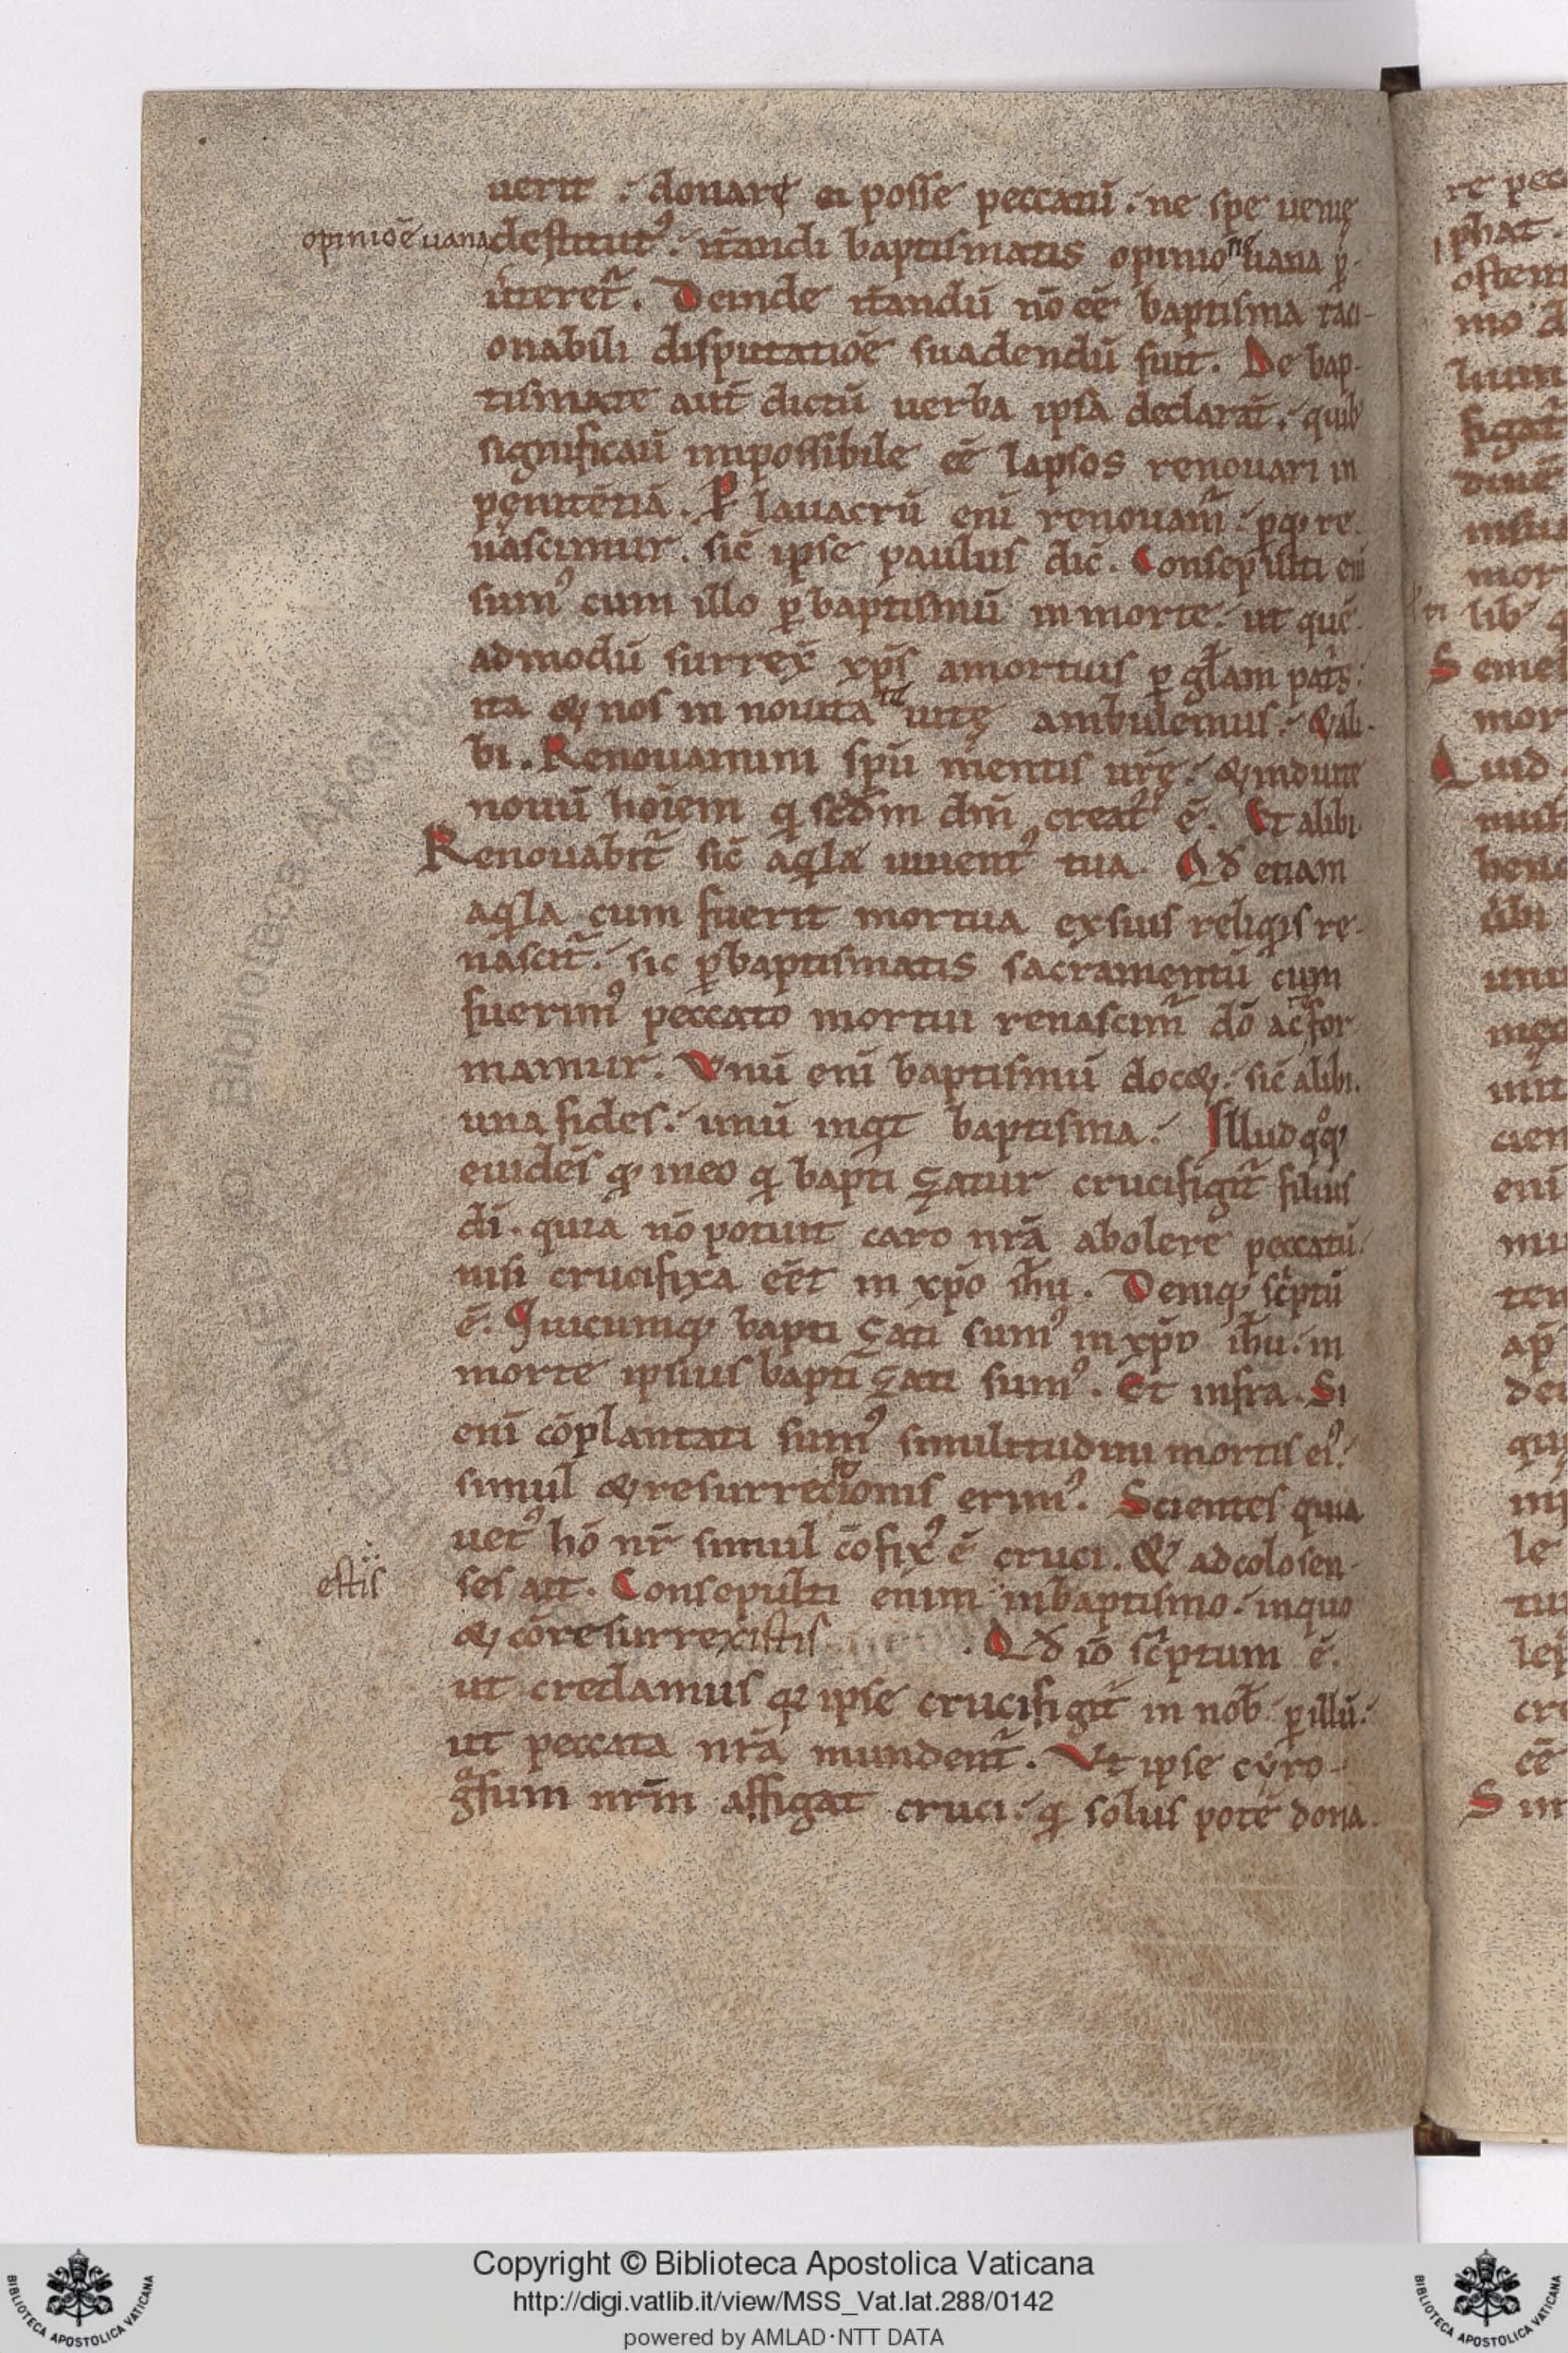 uerit . donare ei posse peccatū . ne spe uenię
opinioē uana
destitutꝰ . it̄andi baptismatis opinione uana ꝑ-
it̄eret̄ . Deinde it̄andū nō eē baptisma raci-
onabili disputatiōe suadendū fuit . De bap-
tismate aut̄ dictū uerba ipsa declarāt . quibꝫ
significauī impossibile eē lapsos renouari in
penitētiā . Per lauacrū enī renouam̄ . ꝑ qꝫ re-
nascimur . sic̄ ipse paulus dic̄ . Consepulti enī
sumꝰ cum illo ꝑ baptismū in morte . ut quē-
admodū surrex̄ xp̄s a mortuis ꝑ gl̄am patris .
ita & nos in nouitate uitę ambulemus . & ali-
bi . Renouamini sp̄u mentis ur̄ę . & induite
nouū hoīem q̄ scd̄m dm̄ creatꝰ ē . Et alibi .
Renouabit̄ sic̄ aq̄la iuuentꝰ tua . Qd̄ etiam
aq̄la cum fuerit mortua ex suis reliq̄is re-
nascit̄ . sic ꝑ baptismatis sacramentū cum
fuerimꝰ peccato mortui renascim̄ dō ac for-
mamur . Vnū enī baptismū doc& . sic̄ alibi .
una fides . unū inq̄t baptisma . Illud qͦqꝫ
euidēs qꝫ in eo q̄ bapti çatur crucifigit̄ filius
dī . quia nō potuit caro nr̄a abolere peccatū .
nisi crucifixa eēt in xp̄o ih̄u . Deniqꝫ scriptū
ē . Quicumqꝫ bapti çati sumꝰ in xp̄o ih̄u . in
morte ipsius bapti çati sumꝰ . Et infra . Si
enī cōplantati sumꝰ similitudini mortis eiꝰ .
simul & resurrectionis erimꝰ . Scientes quia
uetꝰ hō nr̄ simul cōfixꝰ ē cruci . & ad colosen-
estis
ses ait . Consepulti enim in baptismo . in quo
& cōresurrexistis . Qd̄ iō scriptum ē .
ut credamus qꝫ ipse crucifigit̄ in nob̄ ꝑ illū .
ut peccata nr̄a mundent̄ . Vt ipse cyro-
gͣfum nr̄m affigat cruci . q̄ solus potē dona-
re pec
phat .
lib
S eme
mor
Quid
Copyright © Biblioteca Apostolica Vaticana
http://digi.vatlib.it/view/MSS_Vat.lat.288/0142
powered by AMLAD·NTT DATA
BIBLIOTECA APOSTOLICA VATICANA
BIBLIOTECA APOSTOLICA VATICANA